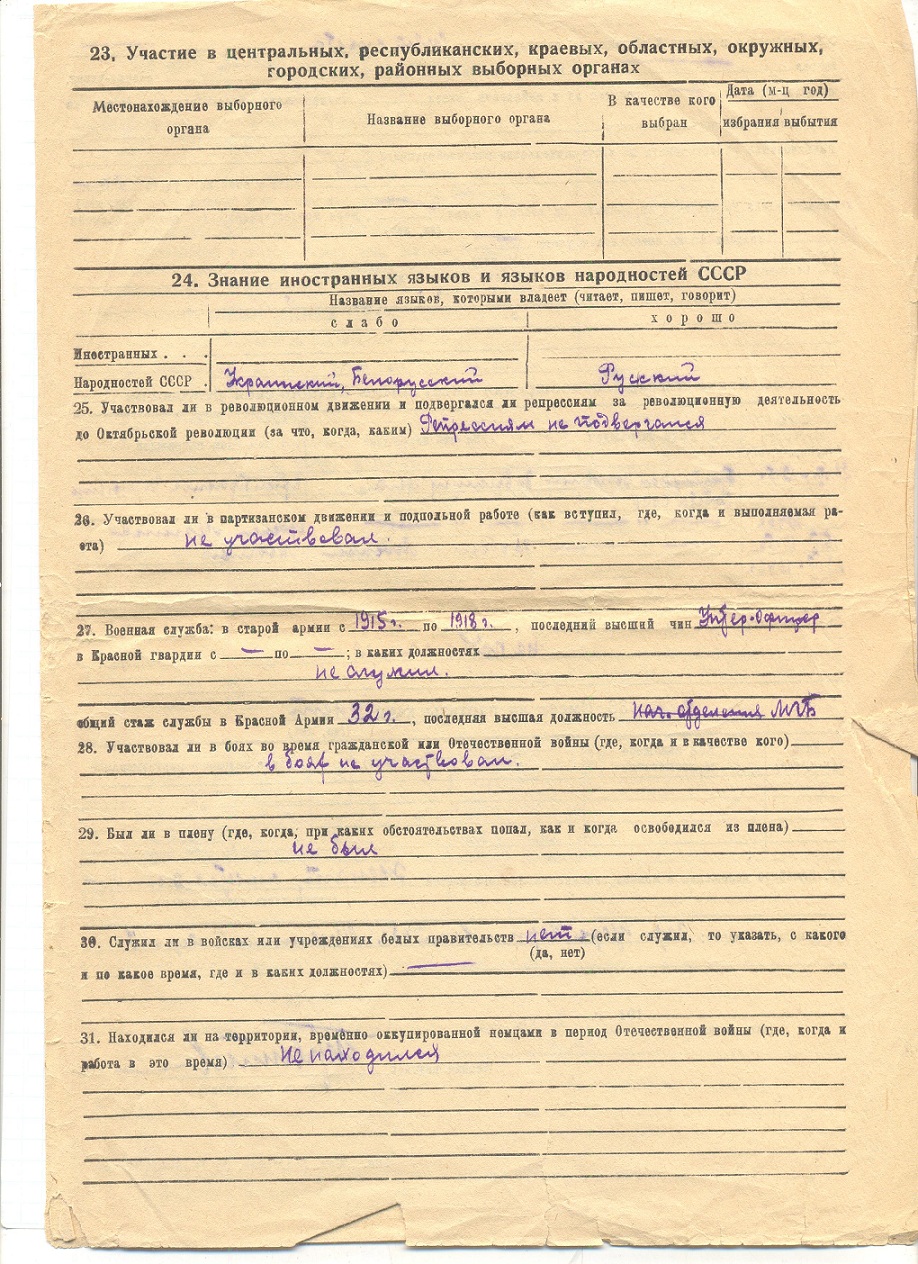 23. Участие в центральных, республиканских, краевых, областных, окружных,
городских, районных выборных органах
Местонахождение выборного
органа
Название выборного органа
В качестве кого
выбран
Дата (м-ц год)
избрания
выбытия
24. Знание иностранных языков и языков народностей СССР
Название языков, которыми владеет (читает, пишет, говорит)
слабо
хорошо
Иностранных . . .
Народностей СССР . Украинский, Белорусский Русский
25. Участвовал ли в революционном движении и подвергался ли репрессиям за революционную деятельность
до Октябрьской революции (за что, когда, каким) Репрессиям не подвергался
26. Участвовал ли в партизанском движении и подпольной работе (как вступил, где, когда и выполняемая ра-
ота) не участвовал.
27. Военная служба: в старой армии с 1915 г. по 1918 г. , последний высший чин Унтер-Офицер
в Красной гвардии с — по — ; в каких должностях
не служил.
общий стаж службы в Красной Армии 32 г. , последняя высшая должность нач. отделения МГБ
28. Участвовал ли в боях во время гражданской или Отечественной войны (где, когда и в качестве кого)
в боях не участвовал.
29. Был ли в плену (где, когда, при каких обстоятельствах попал, как и когда освободился из плена)
не был
30. Служил ли в войсках или учреждениях белых правительств нет (если служил, то указать, с какого
(да, нет)
и по какое время, где и в каких должностях) —
31. Находился ли на территории, временно оккупированной немцами в период Отечественной войны (где, когда и
работа в это время) Не находился